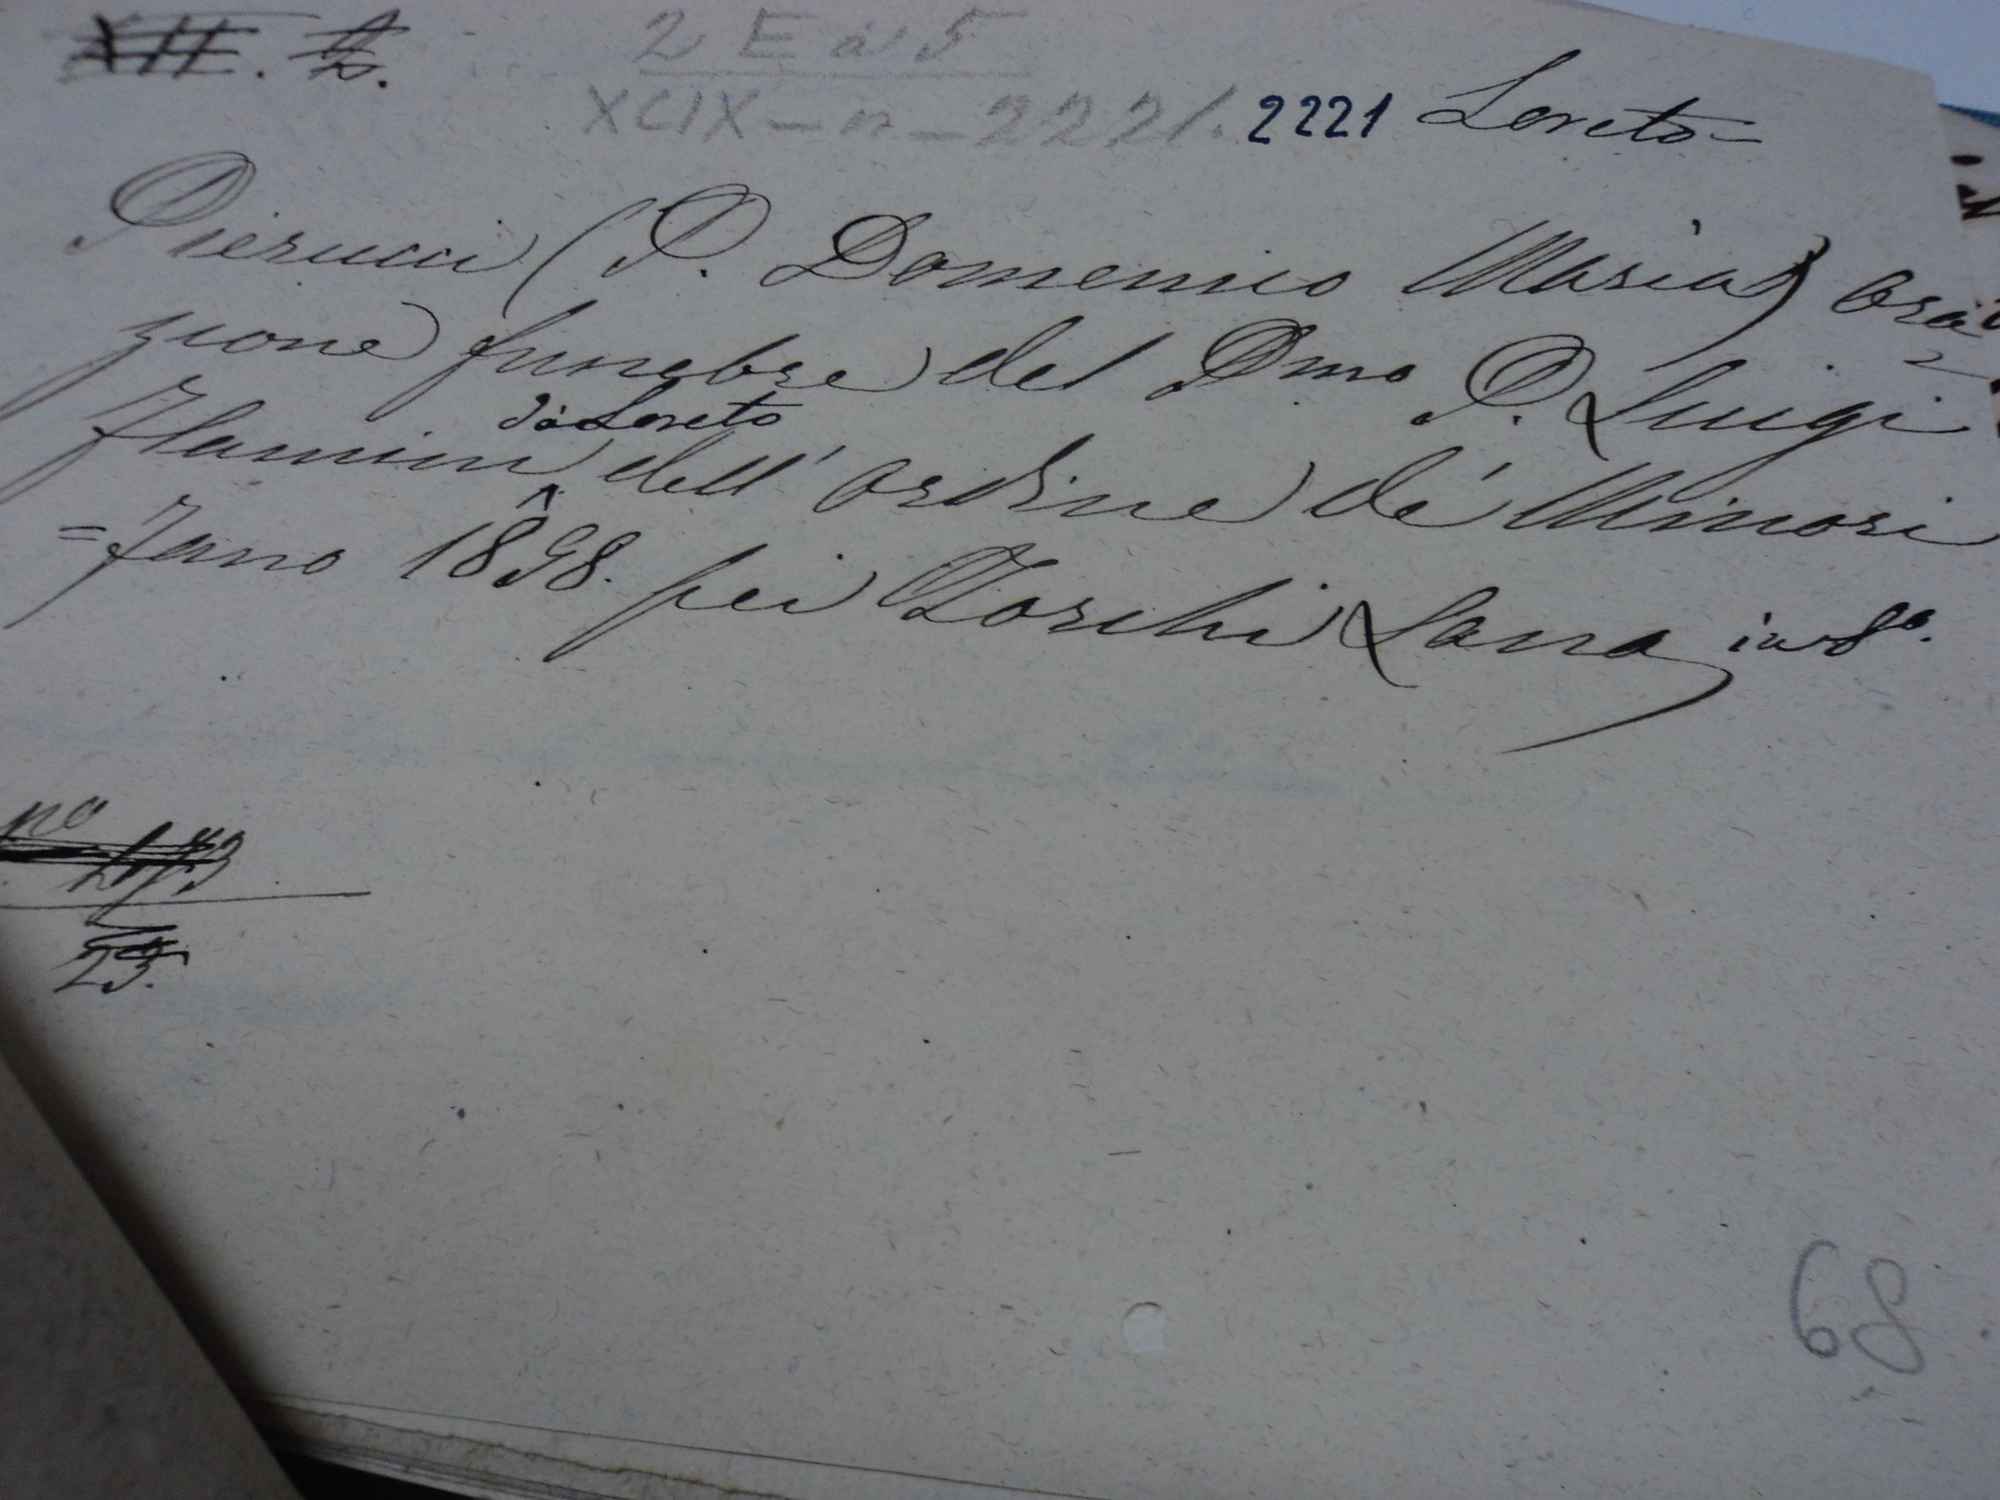 XII. 
2 E a 5
XCIX - n - 2221. 2221 Loreto =
Pierucci (P. Domenico Maria) ora=
zione funebre del Rmo P. Luigi
Flamini da Loreto dell' Ordine de' Minori
= Fano 1898. pei Torchi Lana in 8°.
n°
25.
68